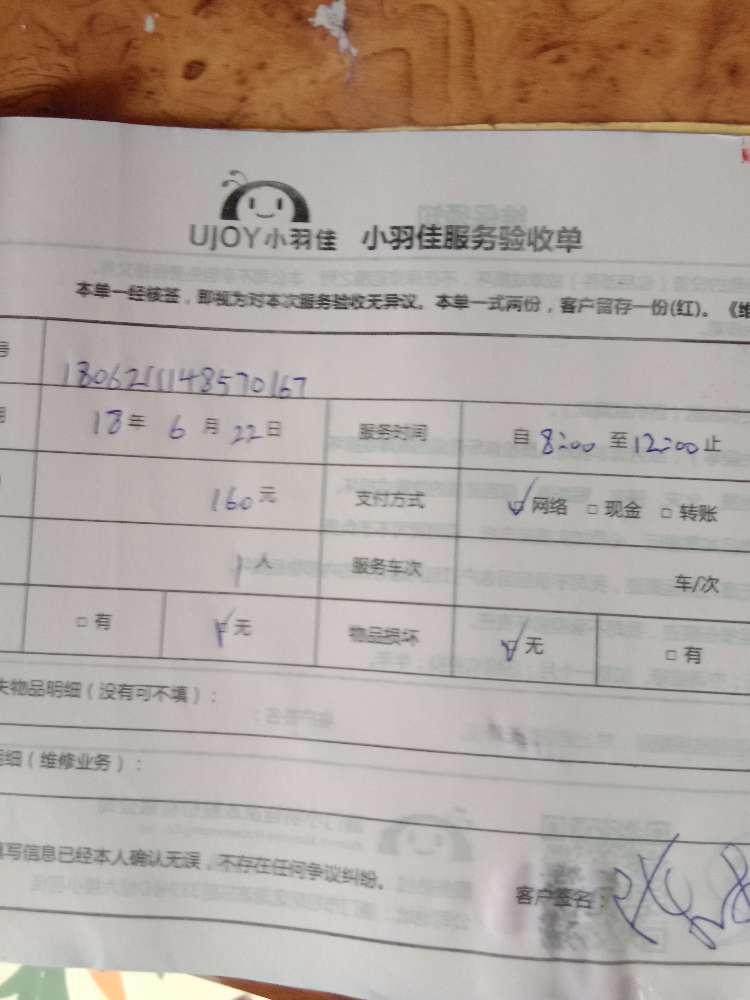 UJOY小羽佳 小羽佳服务验收单
本单一经核签，即视为对本次服务验收无异议。本单一式两份，客户留存一份(红)。《维
号 1806211148570167
期 18年 6月 22日 服务时间 自 8:00 至 12:00 止
160元 支付方式 网络 □ 现金 □ 转账
1人 服务车次 车/次
□ 有 无 物品损坏 无 □ 有
失物品明细（没有可不填）：
明细（维修业务）：
填写信息已经本人确认无误，不存在任何争议纠纷。
客户签名：